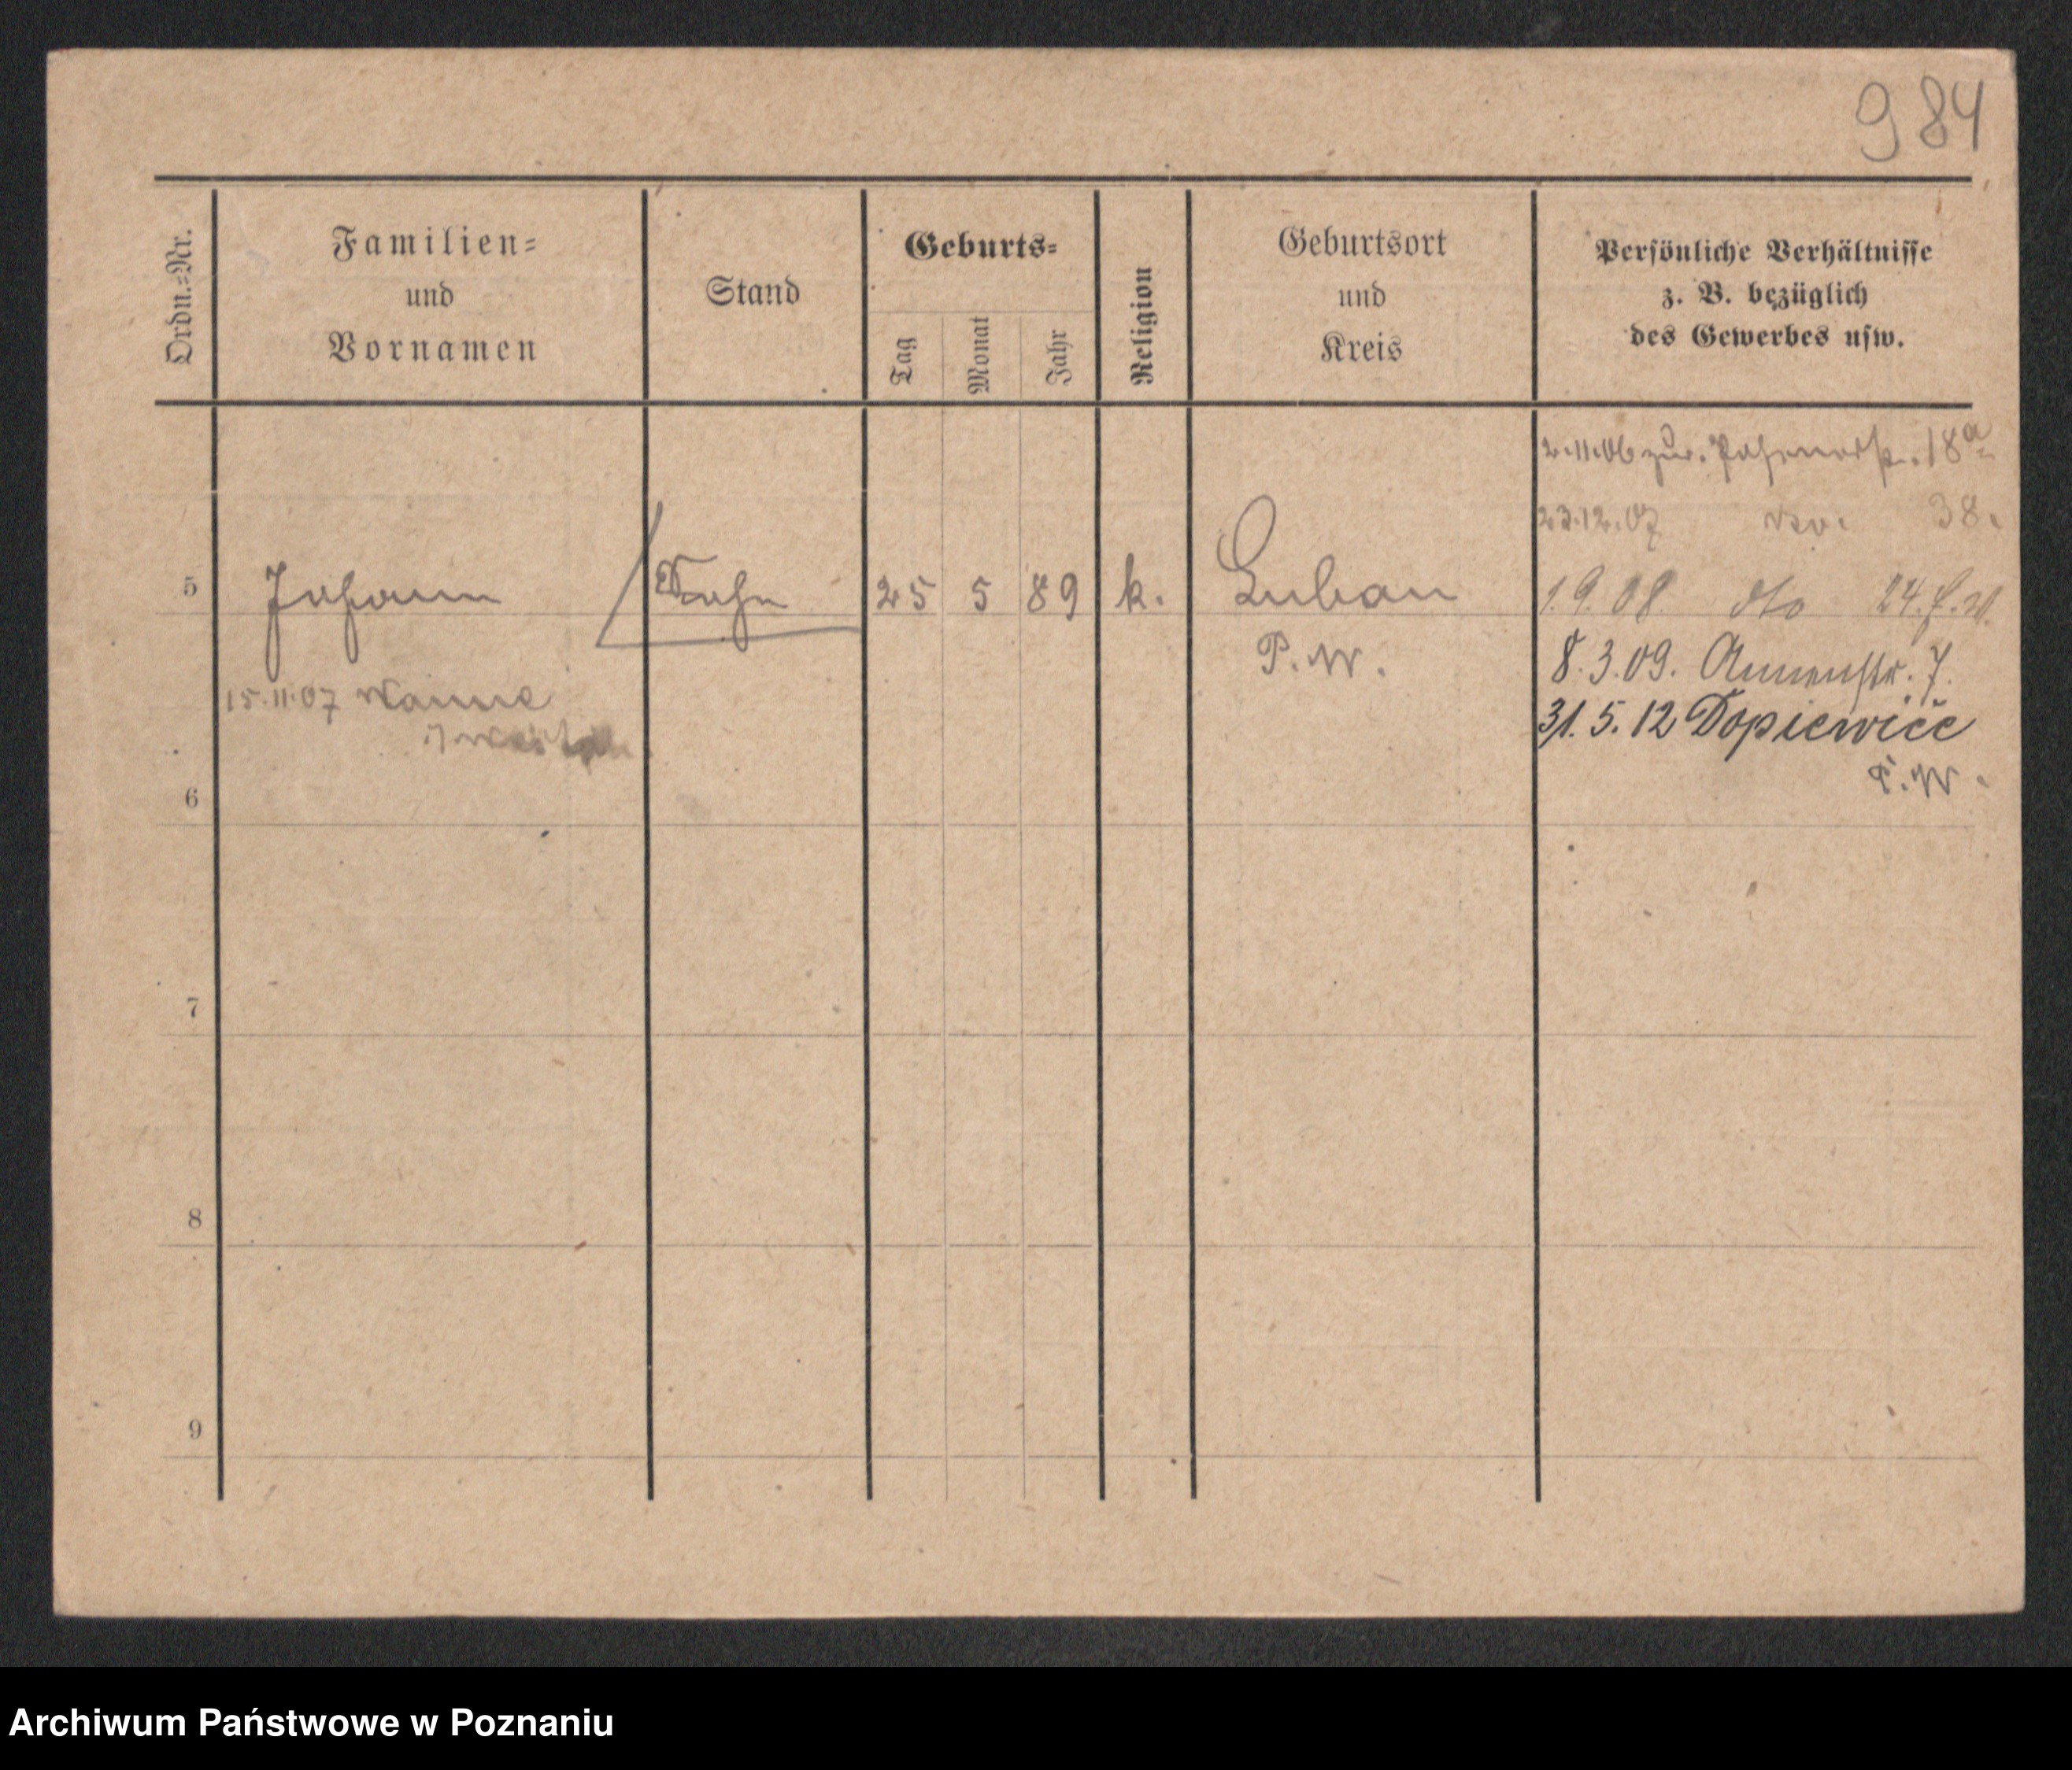 984
Ordn.=Nr.
Familien=
und
Vornamen
Stand
Geburts=
Tag
Monat
Jahr
Religion
Geburtsort
und
Kreis
Persönliche Verhältnisse
z. B. bezüglich
des Gewerbes usw.
2.11.06 zur. 18a
23.12.07 38.
5 Johann Sohn 25 5 89 k. Luban 1.9.08 dto 24.
P.W. 8.3.09. Annenstr. 7.
15.11.07 Wanne
31.5.12 Dopiewiec
P.W.
6
7
8
9
Archiwum Państwowe w Poznaniu